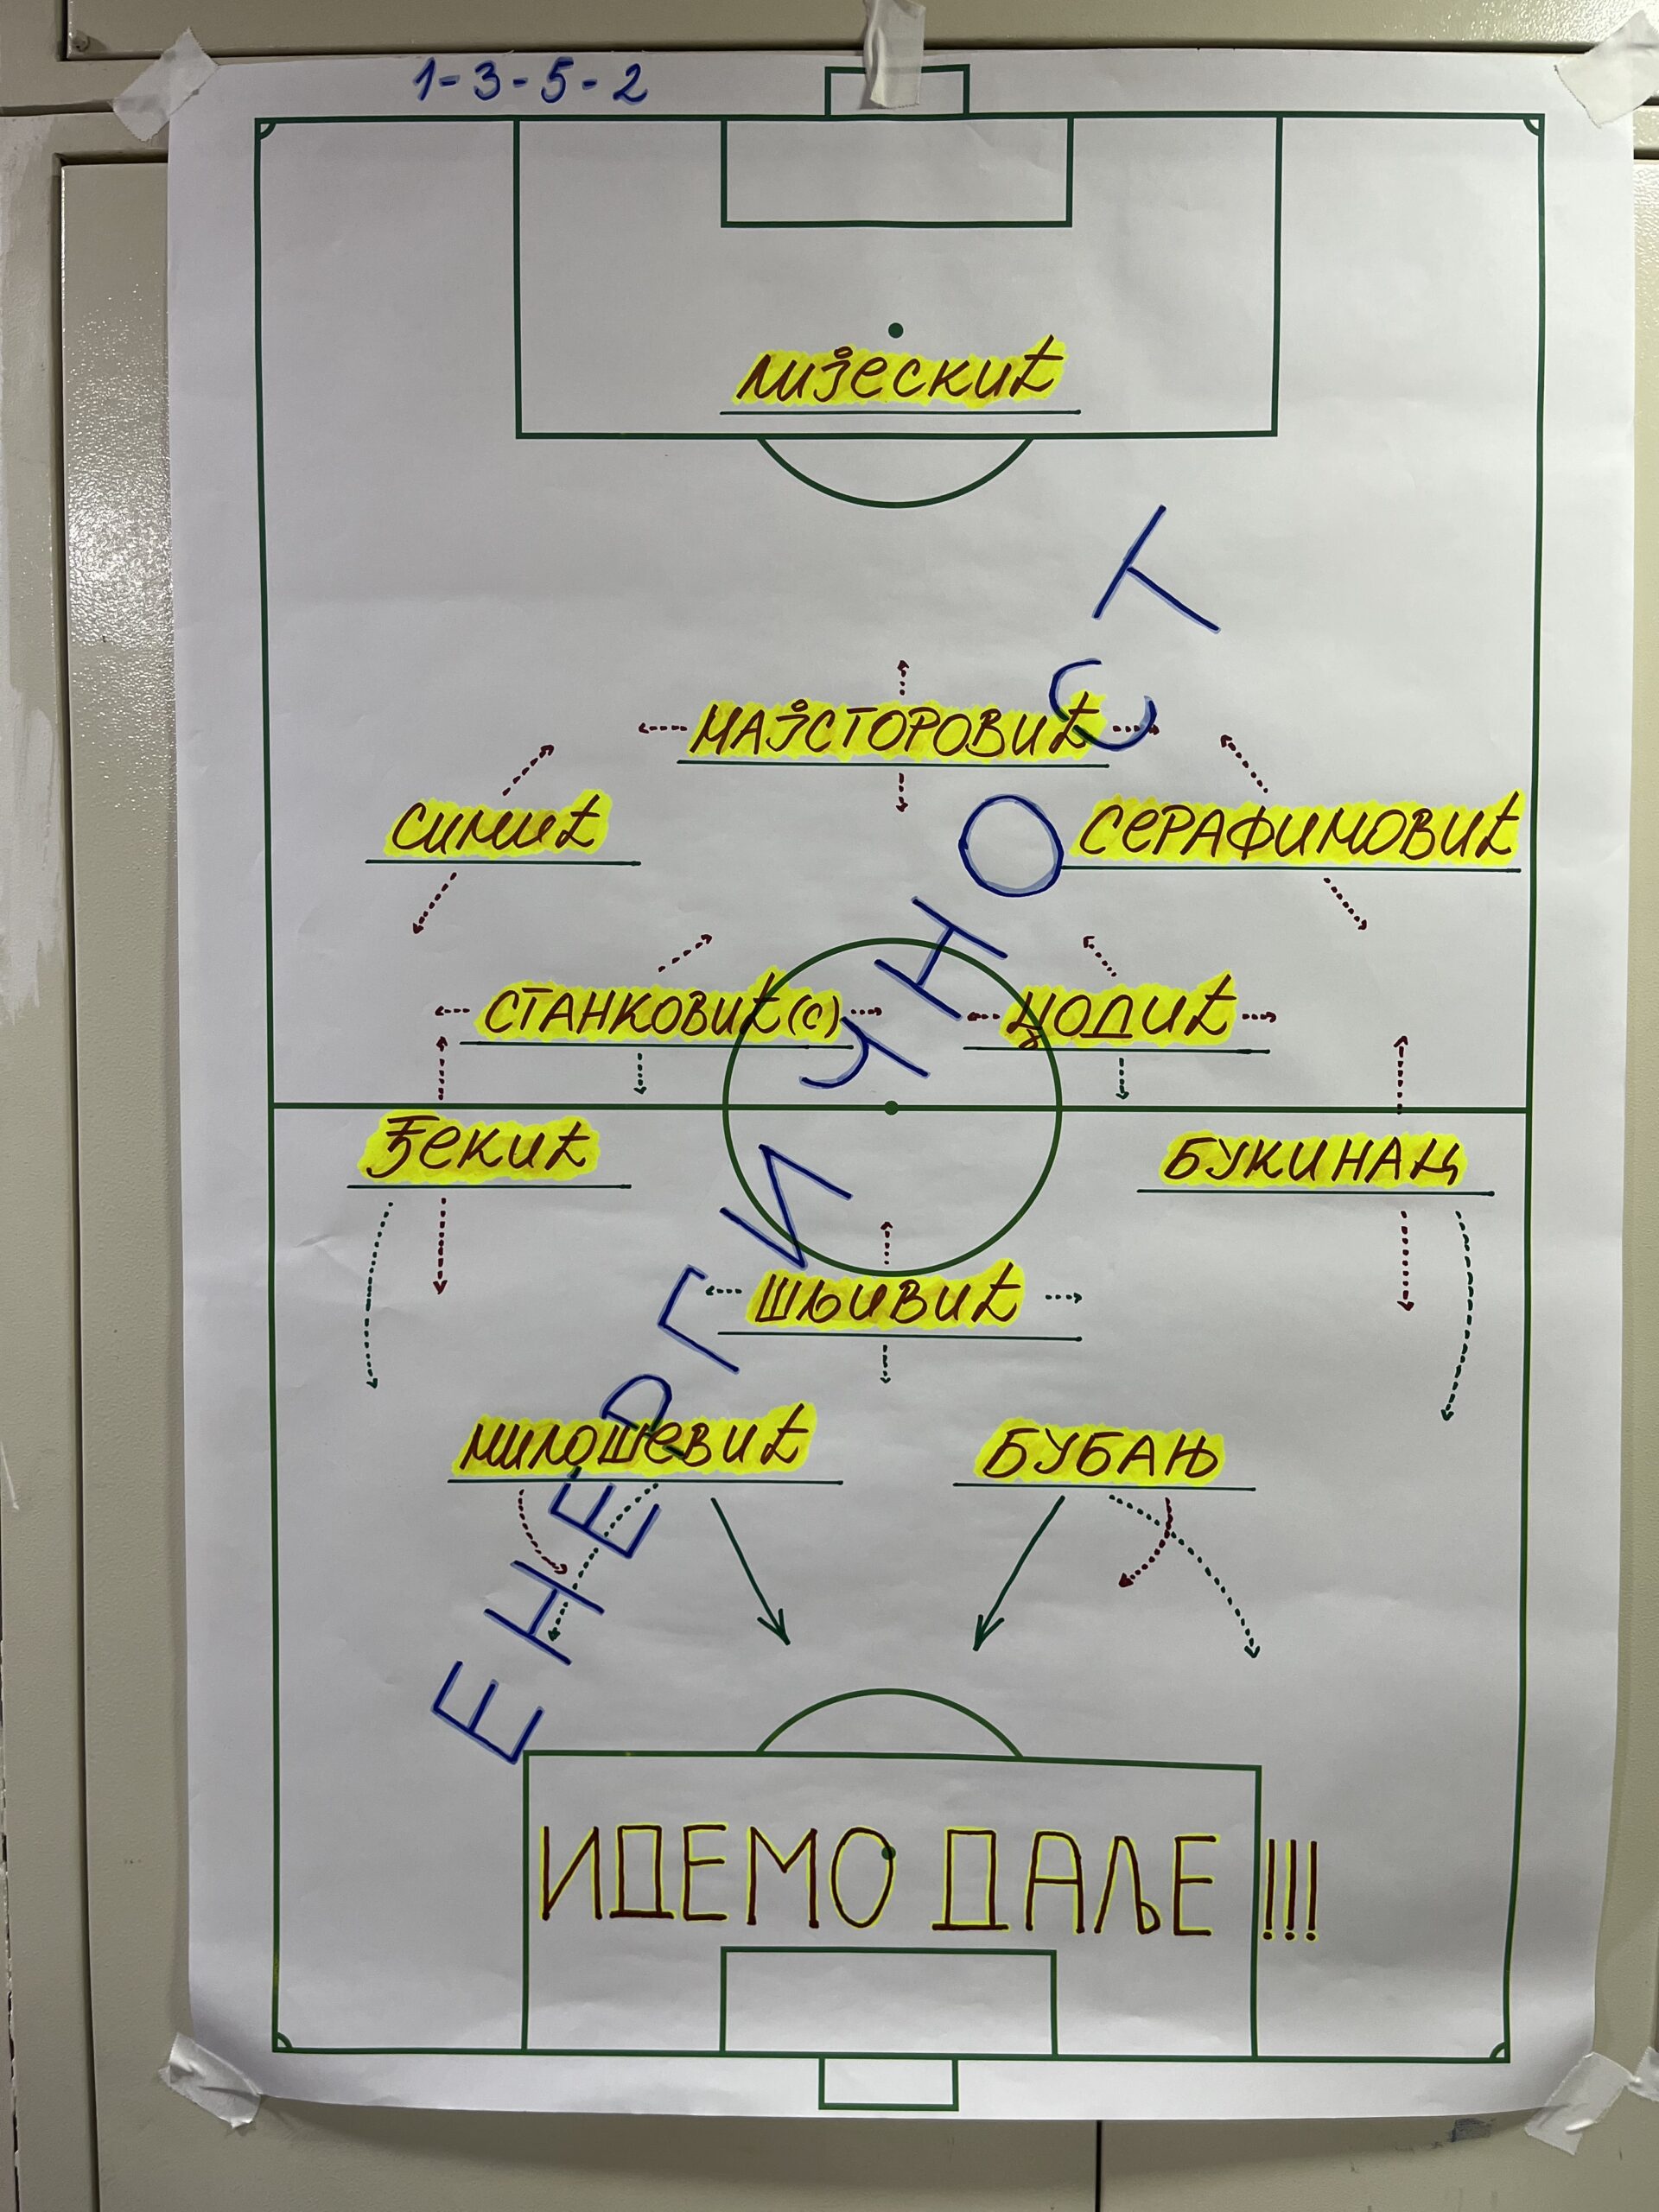 1-3-5-2
ЛИЈЕСКИЋ
МАЈСТОРОВИЋ
СИМИЋ
СЕРАФИМОВИЋ
СТАНКОВИЋ (C)
ЏОДИЋ
ЂЕКИЋ
БУКИНАЦ
ШЉИВИЋ
МИЛОШЕВИЋ
БУБАЊ
ЕНЕРГИЧНОСТ
ИДЕМО ДАЉЕ !!!